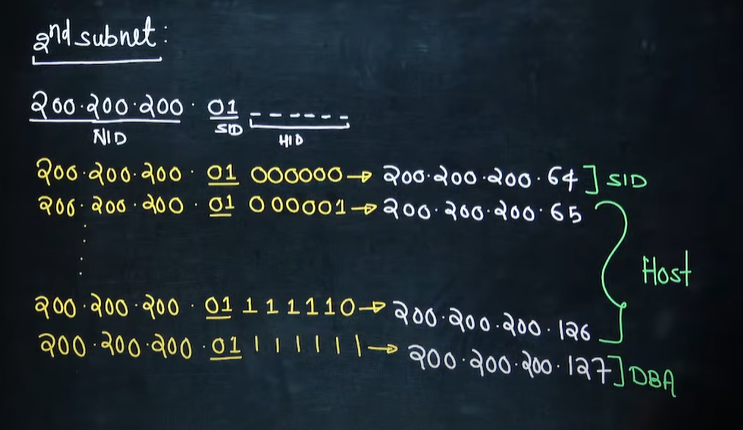 2nd subnet:
200.200.200. 01 ------
NID SID HID
200.200.200. 01 000000→ 200.200.200.64] SID
200.200.200. 01 000001→ 200.200.200.65
Host
200.200.200. 01 111110→ 200.200.200.126
200.200.200.01 111111→ 200.200.200.127] DBA